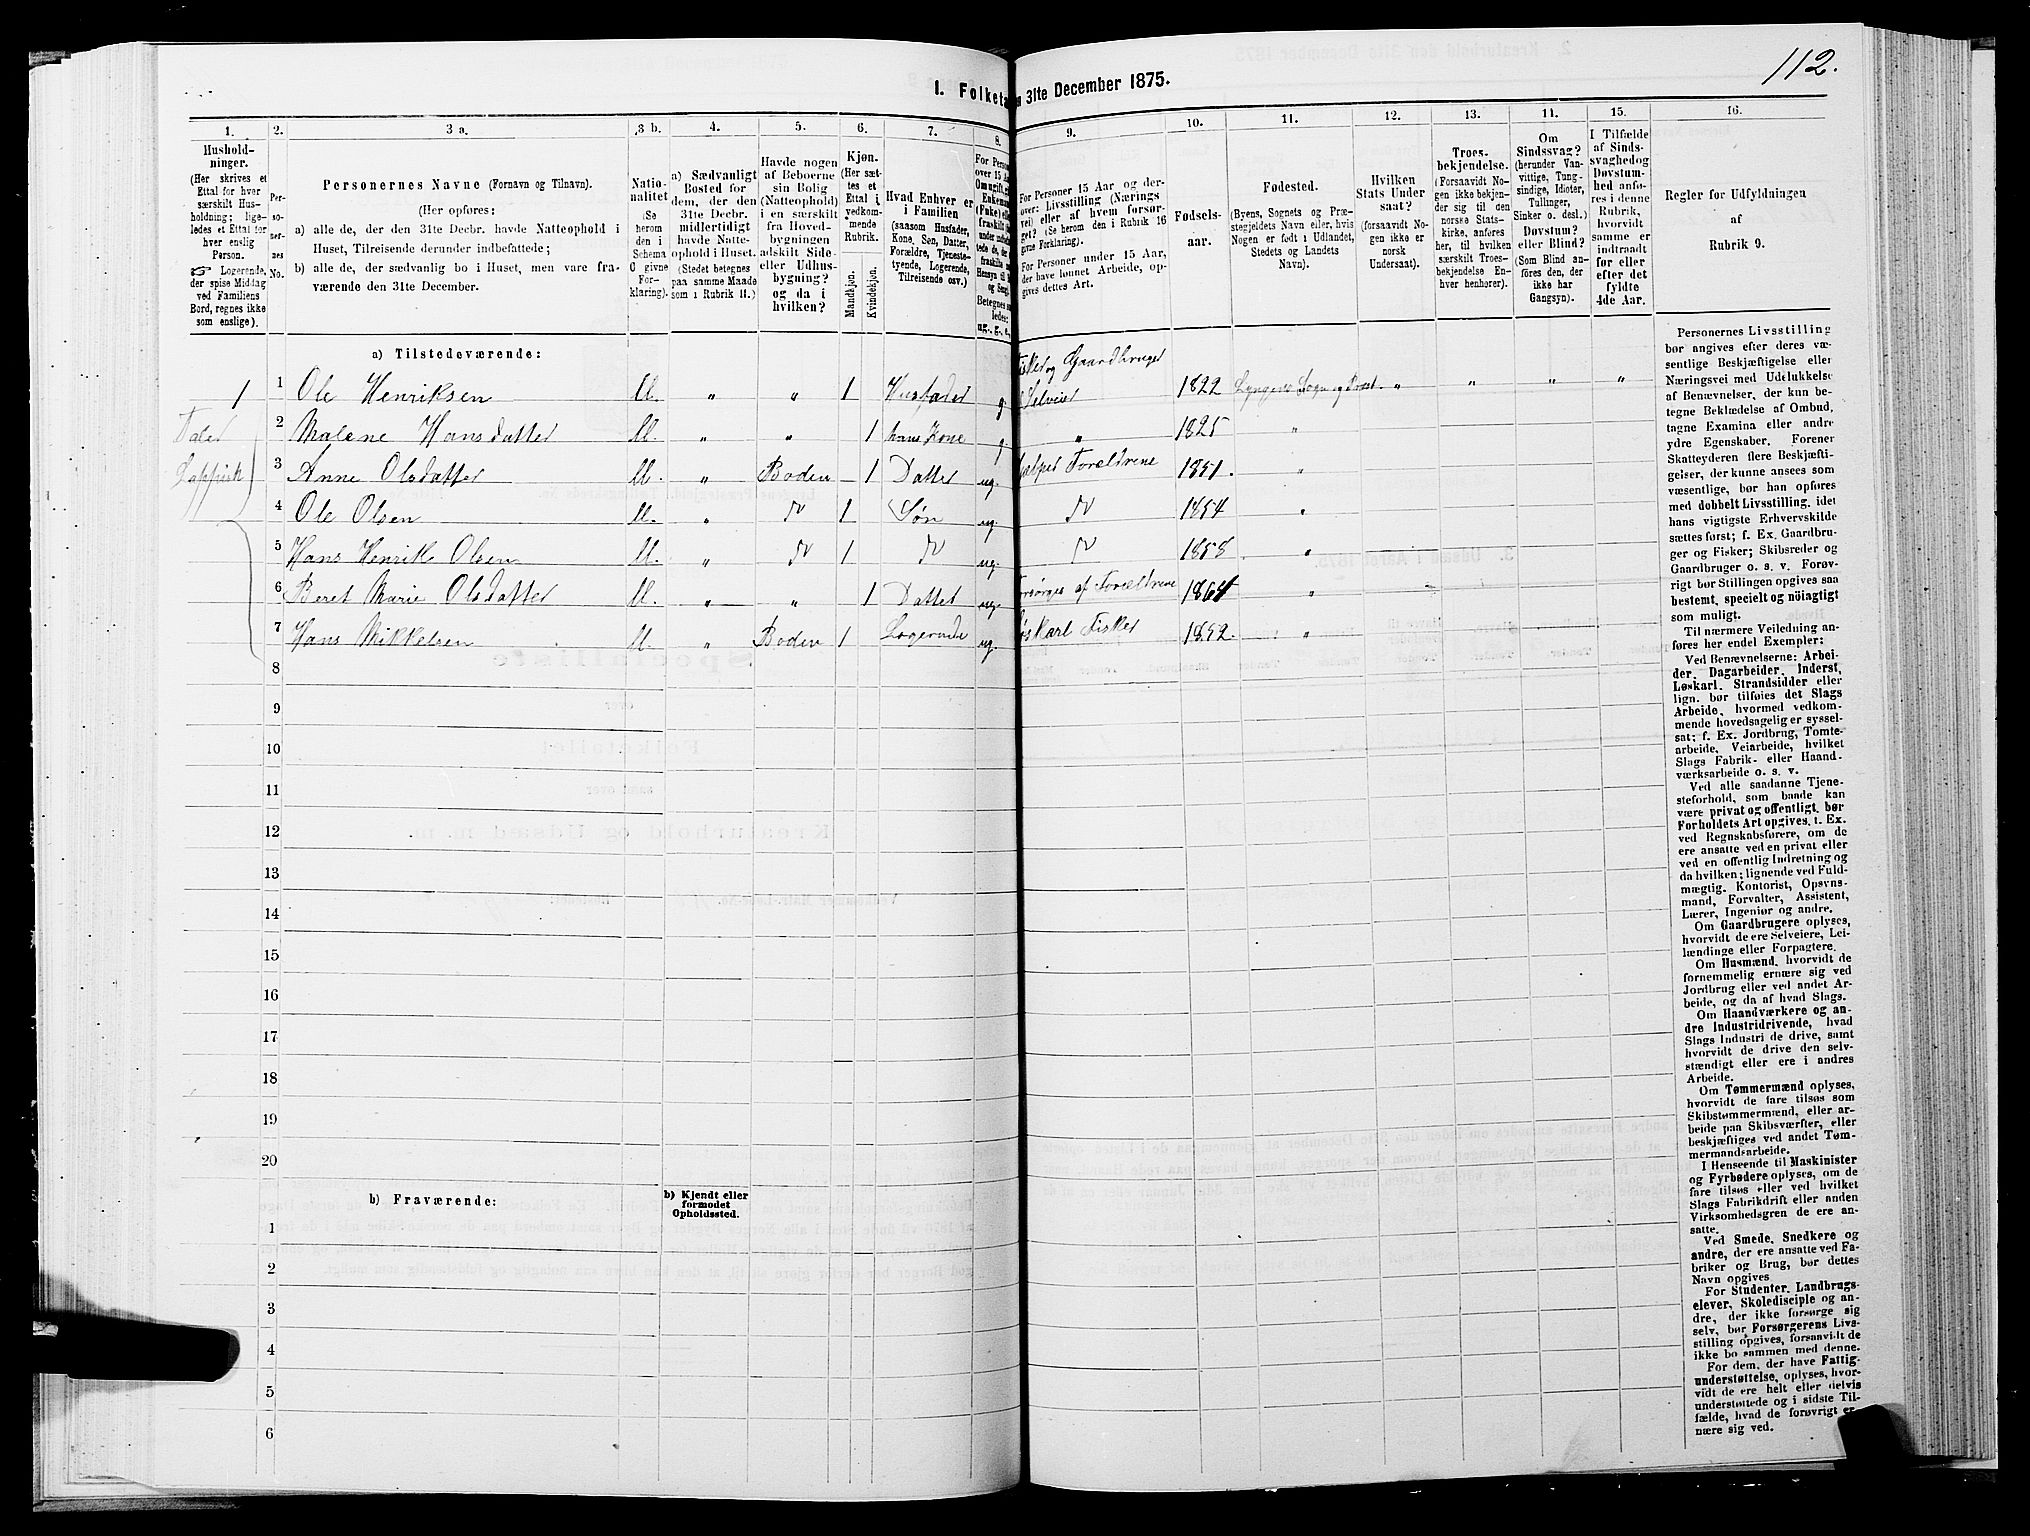 112.
1. Folketa
n 31te December 1875.
1.
Hushold-
ninger.
(Her skrives et
Ettal for hver
særskilt Hus-
holdning; lige-
ledes et Ettal for
hver enslig
Person.
☞ Logerende,
der spise Middag
ved Familiens
Bord, regnes ikke
som enslige).
2.
Per-
so-
ner-
nes
No.
3 a.
Personernes Navne (Fornavn og Tilnavn).
(Her opføres:
a) alle de, der den 31te Decbr. havde Natteophold i
Huset, Tilreisende derunder indbefattede;
b) alle de, der sædvanlig bo i Huset, men vare fra-
værende den 31te December.
3 b.
Natio-
nalitet
(Se
herom
den i
Schema
C givne
For-
klaring).
4.
a) Sædvanligt
Bosted for
dem, der den
31te Decbr.
midlertidigt
havde Natte-
ophold i Huset.
(Stedet betegnes
paa samme Maade
som i Rubrik 11.)
5.
Havde nogen
af Beboerne
sin Bolig
(Natteophold)
i en særskilt
fra Hoved-
bygningen
adskilt Side-
eller Udhus-
bygning?
og da i
hvilken?
6.
Kjøn.
(Her sæt-
tes et
Ettal i
vedkom-
mende
Rubrik.
Mandkjøn.
Kvindekjøn.
7.
Hvad Enhver er
i Familien
(saasom Husfader,
Kone, Søn, Datter,
Forældre, Tjeneste-
tyende, Logerende,
Tilreisende osv.)
8.
For Person
over 15 Aar
Om ugift, g
Enkeman
(Fnke) elle
fraskilt
9.
For Personer 15 Aar og der-
over: Livsstilling (Nærings
vei) eller af hvem forsør-
get? (Se herom den i Rubrik 16
givne Forklaring).
For Personer under 15 Aar,
der have lønnet Arbeide, op-
gives dettes Art.
10.
Fødsels-
aar.
11.
Fødested.
(Byens, Sognets og Præ-
stegjeldets Navn eller, hvis
Nogen er født i Udlandet,
Stedets og Landets
Navn).
12.
Hvilken
Stats Under
saat?
(forsaavidt No-
gen ikke er
norsk
Undersaat).
13.
Troes-
bekjendelse.
(Forsaavidt No-
gen ikke bekjen-
der sig til den
norske Stats-
kirke, anføres
her, til hvilken
særskilt Troes-
bekjendelse En-
hver henhører).
14.
Om
Sindssvag?
(herunder Van-
vittige, Tung-
sindige, Idioter,
Tullinger,
Sinker o. desl.)
Døvstum?
eller Blind?
(Som Blind an-
føres den, der
ikke har
Gangsyn).
15.
I Tilfælde
af Sinds-
svaghed og
Døvstum-
hed anfø-
res i denne
Rubrik,
hvorvidt
samme er
indtraadt
før eller
efter det
fyldte
4de Aar.
16.
Regler for Udfyldningen
af
Rubrik 9.
a) Tilstedeværende:
Fisker og Gaardbruger
1 1 Ole Henriksen M. " " 1 Husfader g. Selveier 1822 Lyngens Sogn og Præst. " " " "
Taler
2 Malene Hansdatter M. " " 1 hans Kone g. " 1825 "
Lappisk
3 Anne Olsdatter M. " Boden 1 Datter ug. hjælper Forældrene 1851. "
4 Ole Olsen M. " " 1 Søn ug. " 1854 "
5 Hans Henrik Olsen M. " " 1 " ug. " 1858 "
6 Beret Marie Olsdatter M. " " 1 Datter ug. Forsørges af Forældrene 1864 "
7 Hans Mikkelsen M. " Boden 1 Logerende ug. Løskarl Fisker 1852. "
8
9
10
11
12
13
14
15
16
17
18
19
20
b) Fraværende:
b) Kjendt eller
formodet
Opholdssted.
1
2
3
4
5
6
Personernes Livsstilling
bør angives efter deres væ-
sentlige Beskjæftigelse eller
Næringsvei med Udelukkelse
af Benævnelser, der kun be-
tegne Beklædelse af Ombud,
tagne Examina eller andre
ydre Egenskaber. Forener
Skatteyderen flere Beskjæfti-
gelser, der kunne ansees som
væsentlige, bør han opføres
med dobbelt Livsstilling, idet
hans vigtigste Erhvervskilde
sættes først; f. Ex. Gaardbru-
ger og Fisker; Skibsreder og
Gaardbruger o. s. v. Forøv-
rigt bør Stillingen opgives saa
bestemt, specielt og nöiagtigt
som muligt.
Til nærmere Veiledning an-
føres her endel Exempler:
Ved Benævnelserne: Arbei-
der, Dagarbeider, Inderst,
Løskarl, Strandsidder eller
lign. bør tilføies det Slags
Arbeide, hvormed vedkom-
mende hovedsagelig er syssel-
sat; f. Ex. Jordbrug, Tomte-
arbeide, Veiarbeide, hvilket
Slags Fabrik- eller Haand-
værksarbeide o. s. v.
Ved alle saadanne Tjene-
steforhold, som baade kan
være privat og offentligt, bør
Forholdets Art opgives, t. Ex.
ved Regnskabsførere, om de
ere ansatte ved en privat eller
ved en offentlig Indretning og
da hvilken; lignende ved Fuld-
mægtig, Kontorist, Opsyns-
mand, Forvalter, Assistent,
Lærer, Ingeniør og andre.
Om Gaardbrugere oplyses,
hvorvidt de ere Selveiere, Lei-
lændinge eller Forpagtere.
Om Husmænd, hvorvidt de
fornemmelig ernære sig ved
Jordbrug eller ved andet Ar-
beide, og da af hvad Slags.
Om Haandværkere og an-
dre Industridrivende, hvad
Slags Industri de drive, samt
hvorvidt de drive den selv-
stændigt eller ere i andres
Arbeide.
Om Tømmermænd oplyses,
hvorvidt de fare tilsøs som
Skibstømmermænd, eller ar-
beide paa Skibsværfter, eller
beskjæftiges ved andet Tøm-
mermandsarbeide.
I Henseende til Maskinister
og Fyrbødere oplyses, om de
fare tilsøs eller ved hvilket
Slags Fabrikdrift eller anden
Virksomhedsgren de ere an-
satte.
Ved Smede, Snedkere og
andre, der ere ansatte ved Fa-
briker og Brug, bør dettes
Navn opgives
For Studenter, Landbrugs-
elever, Skoledisciple og an-
dre, der ikke forsørge sig
selv, bør Forsørgerens Livs-
stilling opgives, forsaavidt de
ikke bo sammen med denne.
For dem, der have Fattig-
understøttelse, oplyses, hvor-
vidt de ere helt eller delvis
understøttede og i sidste Til-
fælde, hvad de forøvrigt er-
nære sig ved.